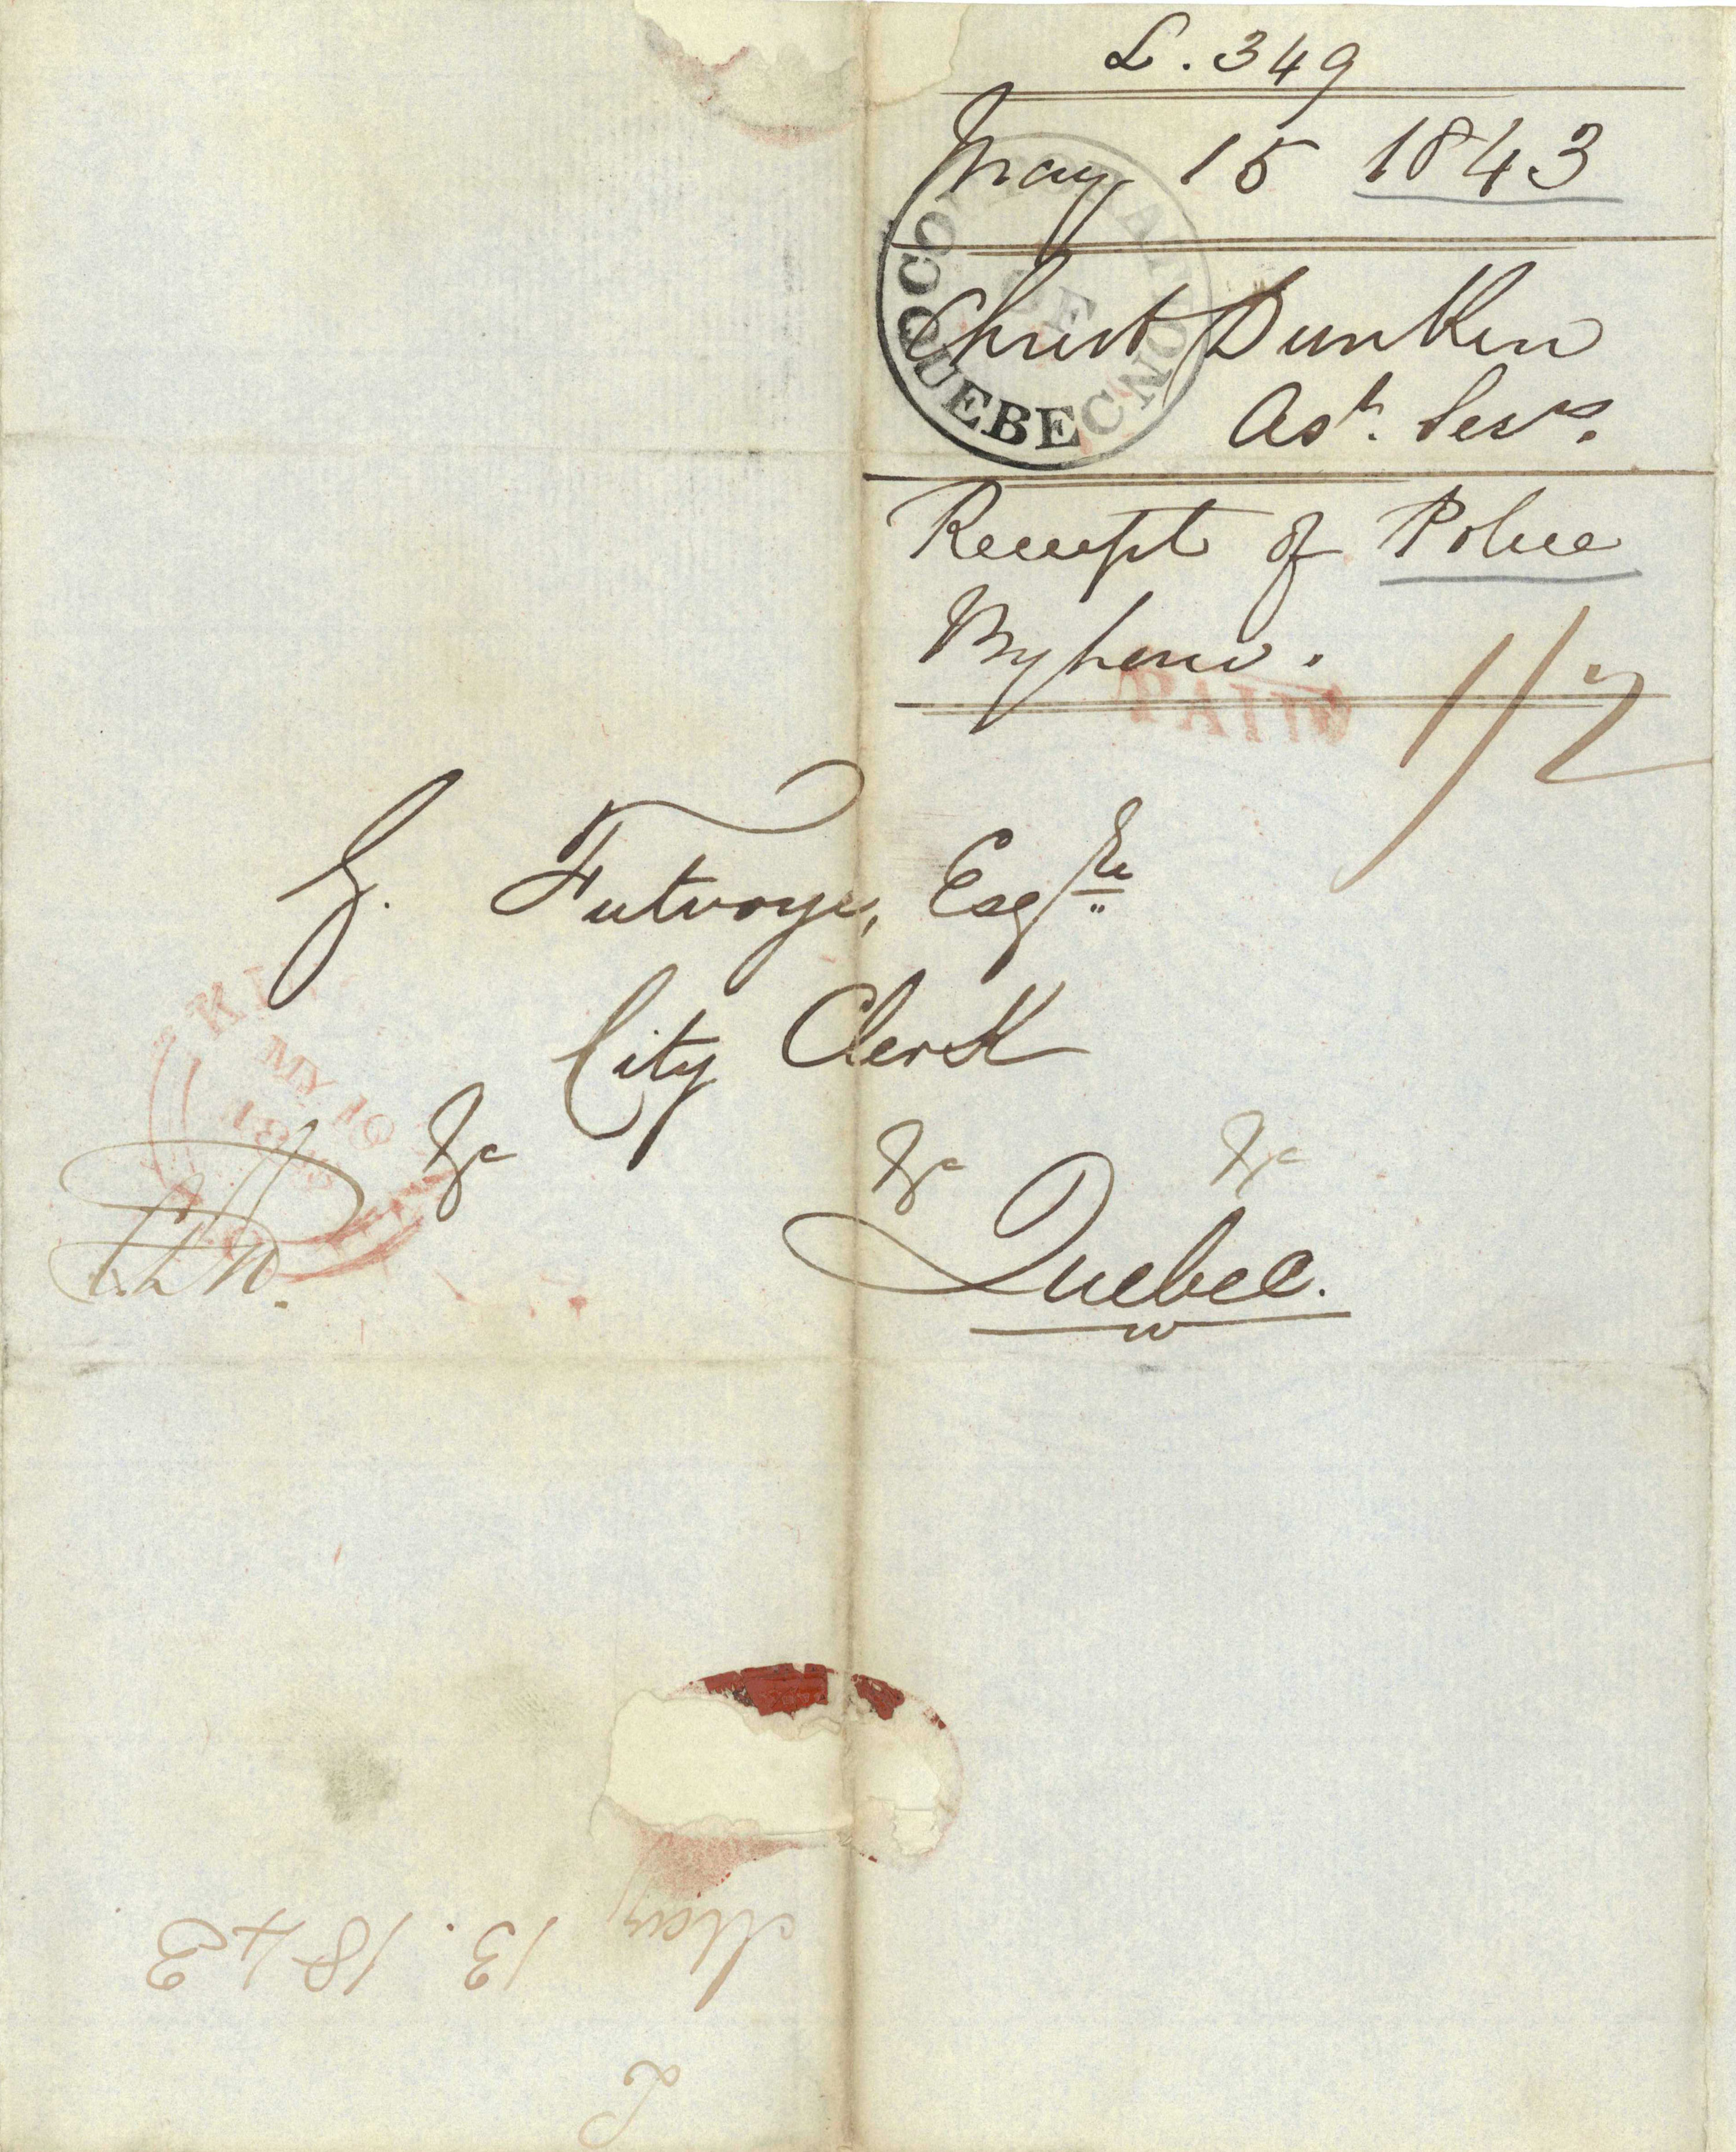 L. 349
May 15 1843
CORPORATION
OF
QUEBEC
Christ Dunkin
Ast. Secy.
Receipt of Police
PAID
1/2
G. Futvoye, Esqre
City Clerk
KI
MY 10
&c &c &c
Quebec.
May 13. 1843
L